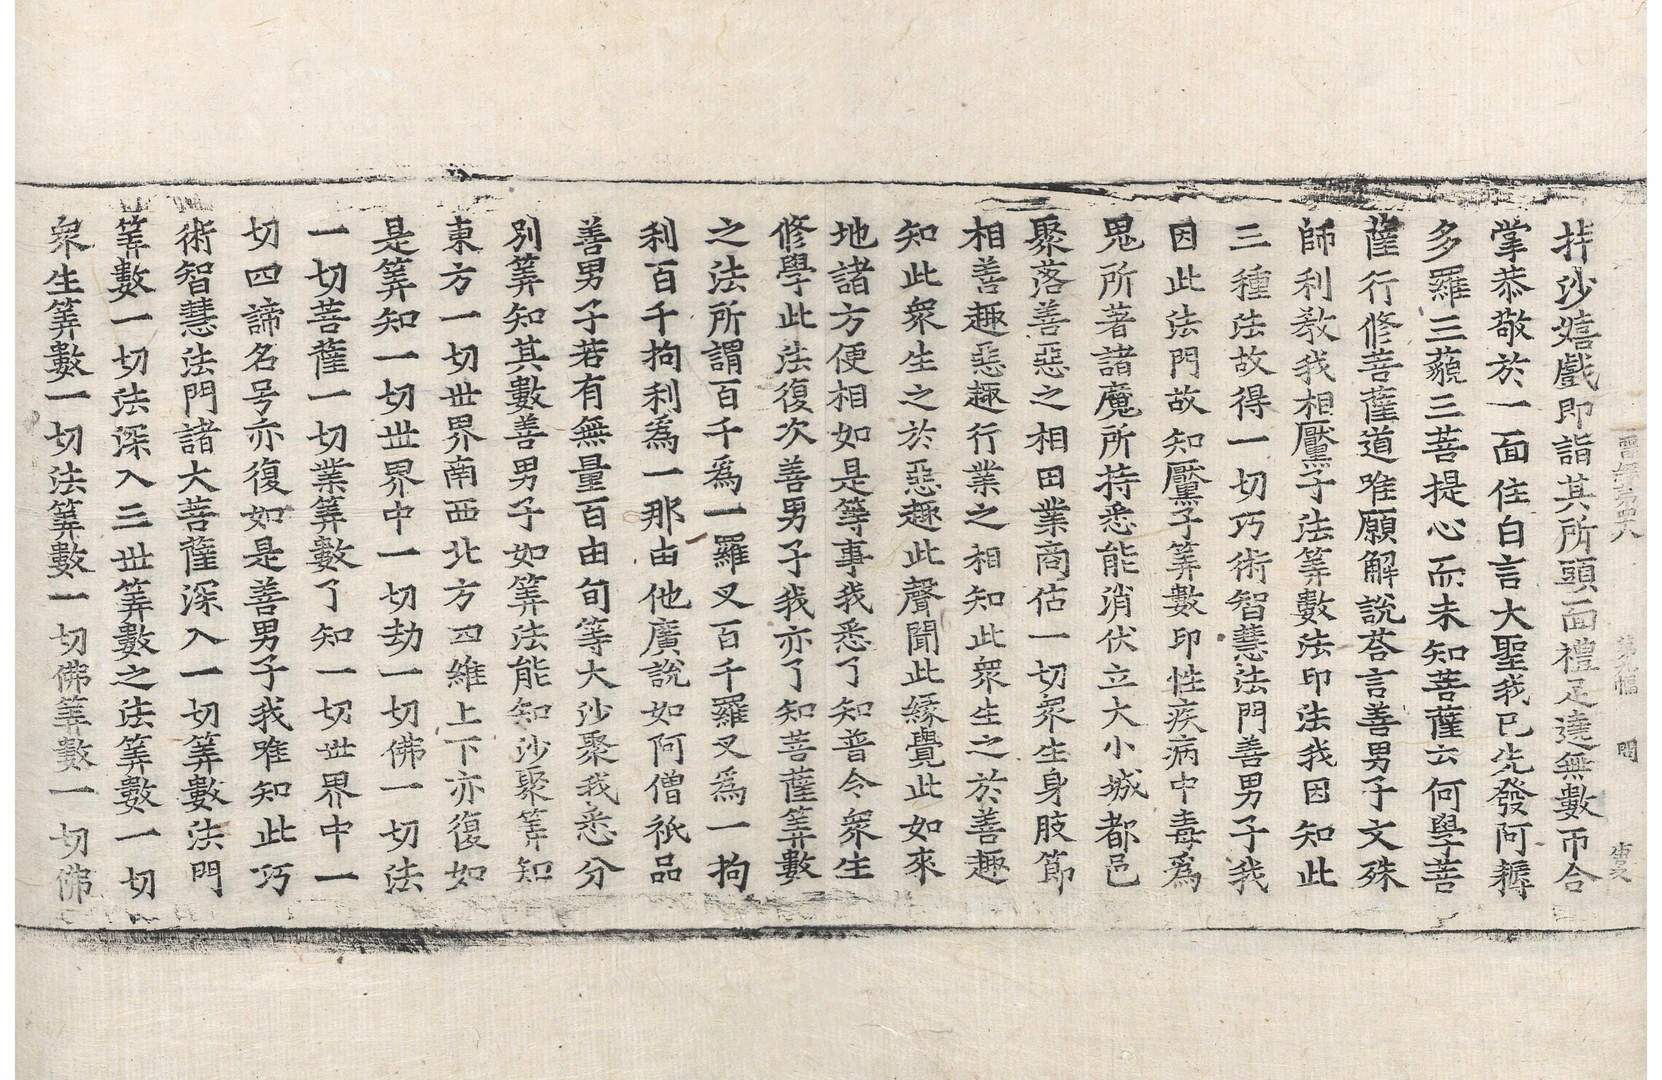 晉經第四十八 第九幅 問
沙嬉戲即詣其所頭面禮足遶無數帀合
掌恭敬於一面住白言大聖我已先發阿耨
多羅三藐三菩提心而未知菩薩云何學菩
薩行修菩薩道唯願解說荅言善男子文殊
師利教我相黶子法筭數法印法我因知此
三種法故得一切巧術智慧法門善男子我
因此法門故知黶子筭數印性疾病中毒爲
鬼所著諸魔所持悉能消伏立大小城都邑
聚落善惡之相田業商估一切衆生身肢節
相善趣惡趣行業之相知此衆生之於善趣
知此衆生之於惡趣此聲聞此緣覺此如來
地諸方便相如是等事我悉了知普令衆生
修學此法復次善男子我亦了知菩薩筭數
之法所謂百千爲一羅叉百千羅叉爲一拘
利百千拘利爲一那由他廣說如阿僧祇品
善男子若有無量百由旬等大沙聚我悉分
別筭知其數善男子如筭法能知沙聚筭知
東方一切世界南西北方四維上下亦復如
是筭知一切世界中一切劫一切佛一切法
一切菩薩一切業筭數了知一切世界中一
切四諦名号亦復如是善男子我唯知此巧
術智慧法門諸大菩薩深入一切筭數法門
筭數一切法深入三世筭數之法筭數一切
衆生筭數一切法筭數一切佛筭數一切佛